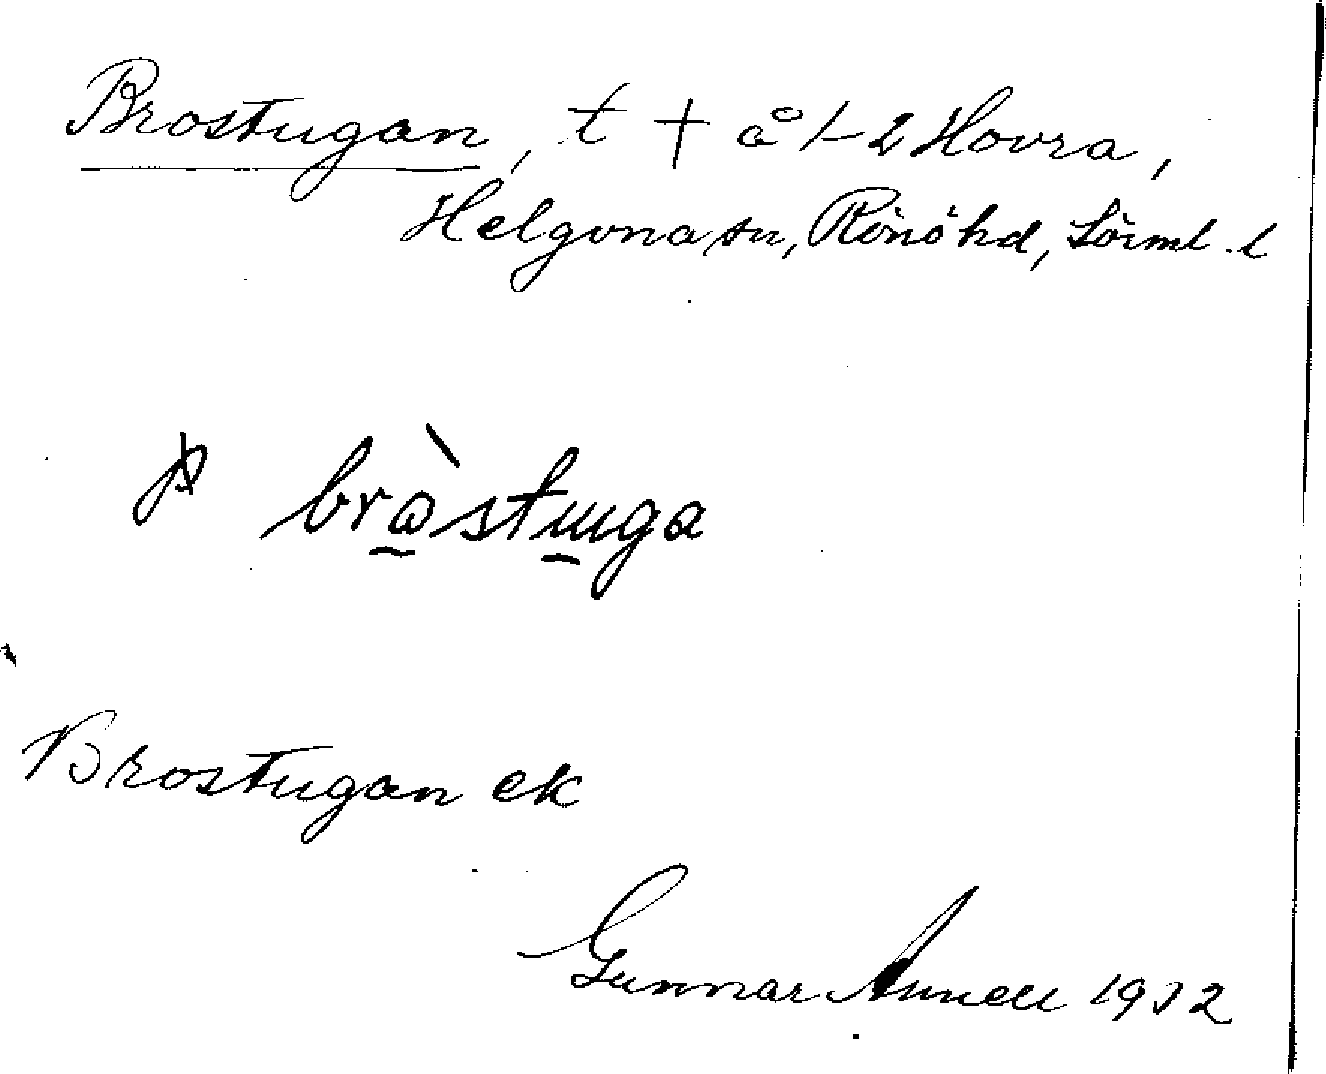 Brostugan, t + å 1-2 Hovra,
Helgona sn, Rönö hd, Sörml. l
bròstuga
Brostugan ek
Gunnar 1932